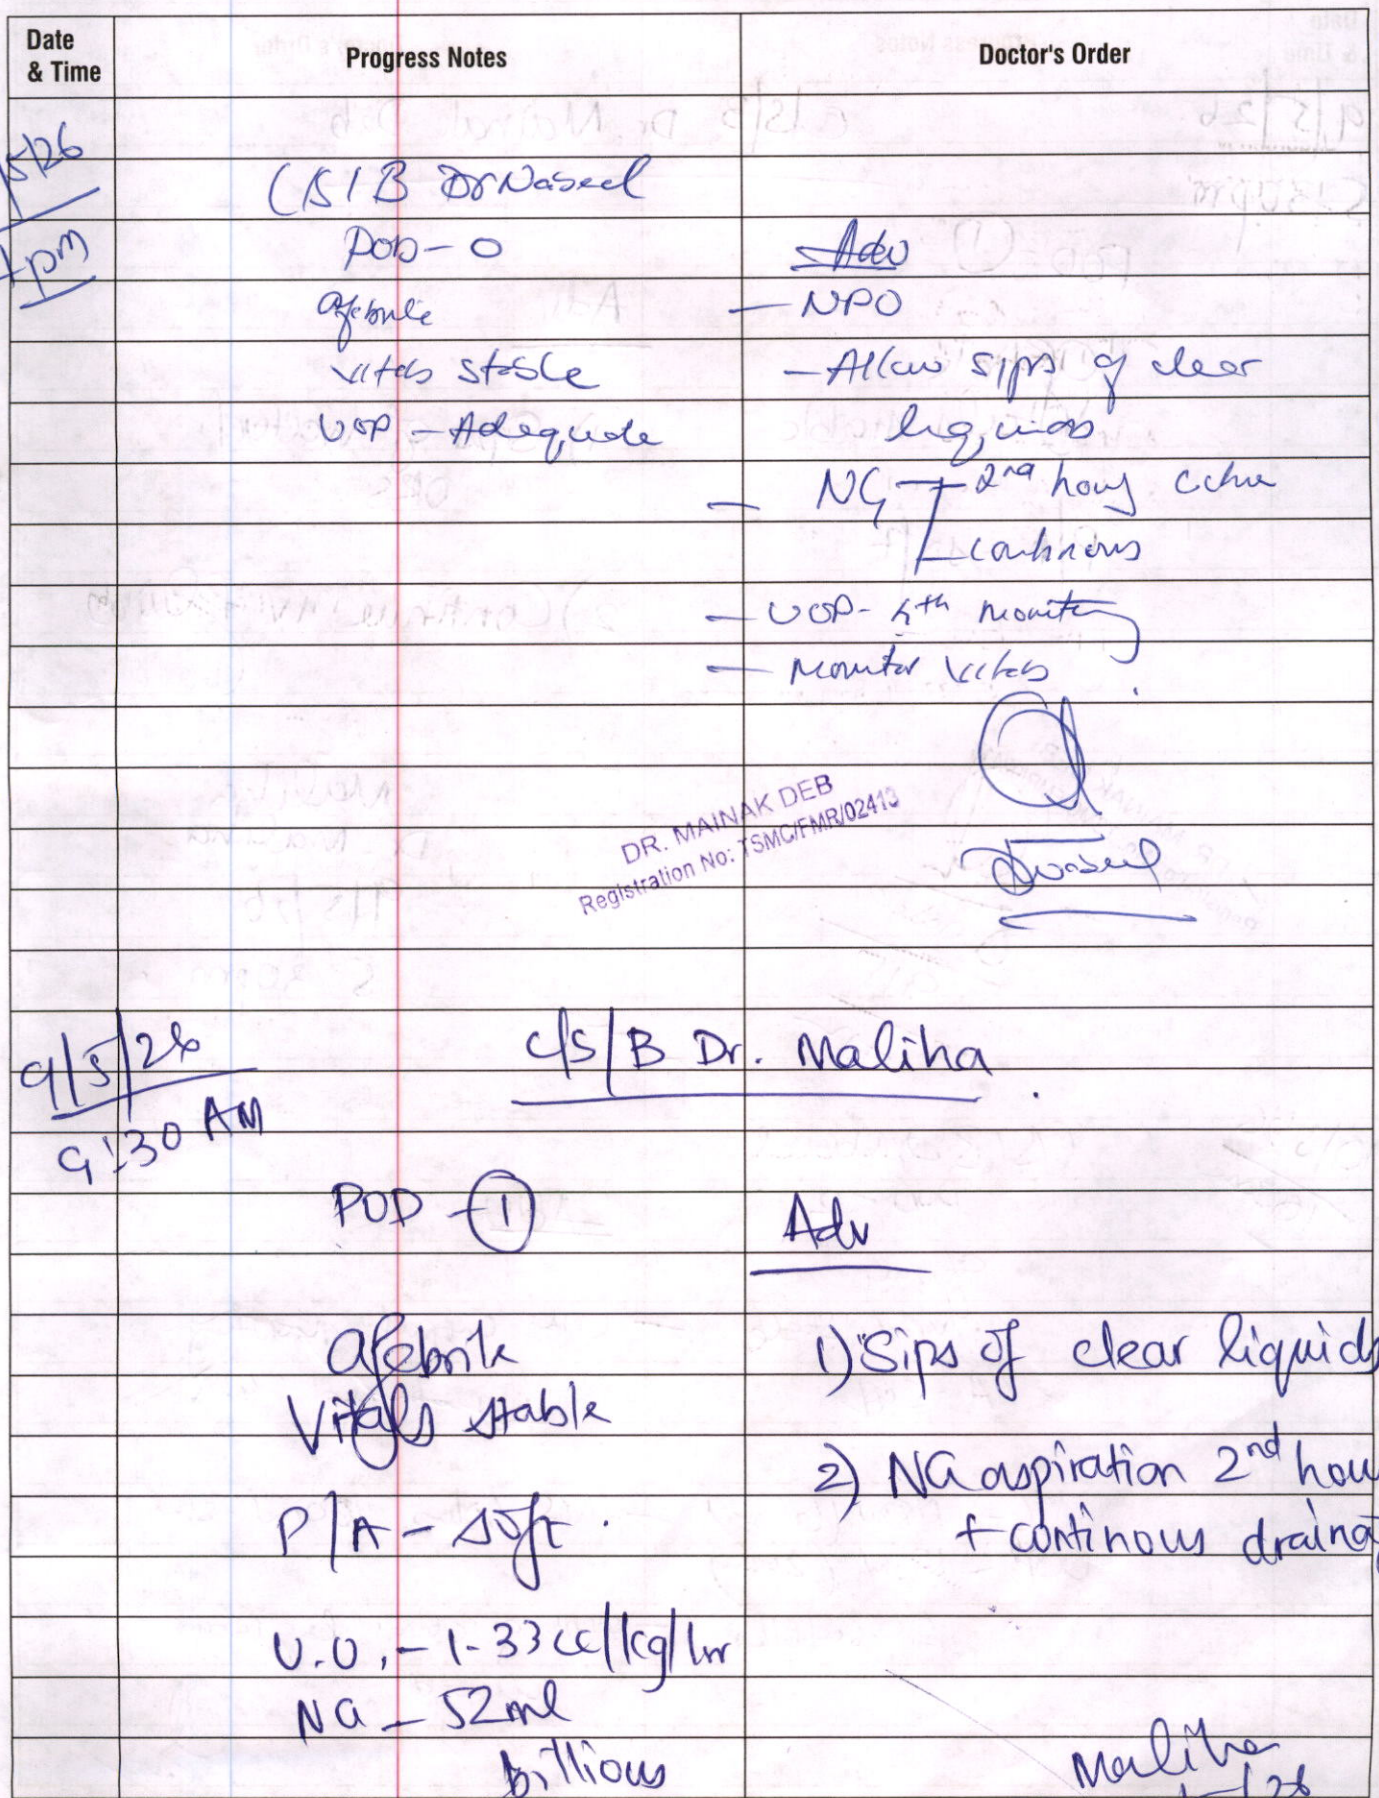 Date & Time
Progress Notes
Doctor's Order
5/26
pm
C/S/B Dr Naseel
POD - 0
Afebrile
vitals stable
UOP - Adequate
Adv
- NPO
- Allow sips of clear
liquids
- NG 2nd hourly
continous
- UOP - 4th monitoring
- Monitor vitals
DR. MAINAK DEB
Registration No: TSMC/FMR/02413
9/5/26
9:30 AM
C/S/B Dr. Maliha
POD - 1
Adv
Afebrile
Vitals stable
P/A - soft.
U.O. - 1.33 cc/kg/hr
NG - 52ml
billious
1) Sips of clear liquids
2) NG aspiration 2nd hou
+ continous drainag
Maliha